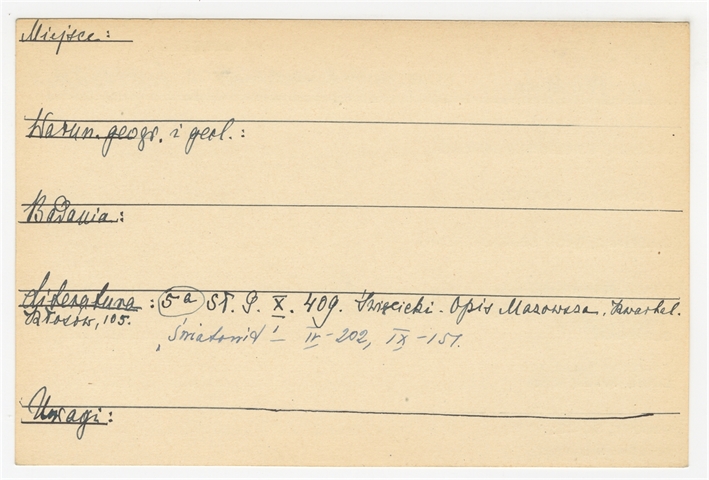 Miejsce:
Warun. geogr. i geol.:
Badania:
Literatura: 5a Sł. G. X. 409. Święcicki - Opis Mazowsza, Kwartal.
Kłosów, 105.
„Światowid" - IV-202, IX-151.
Uwagi: